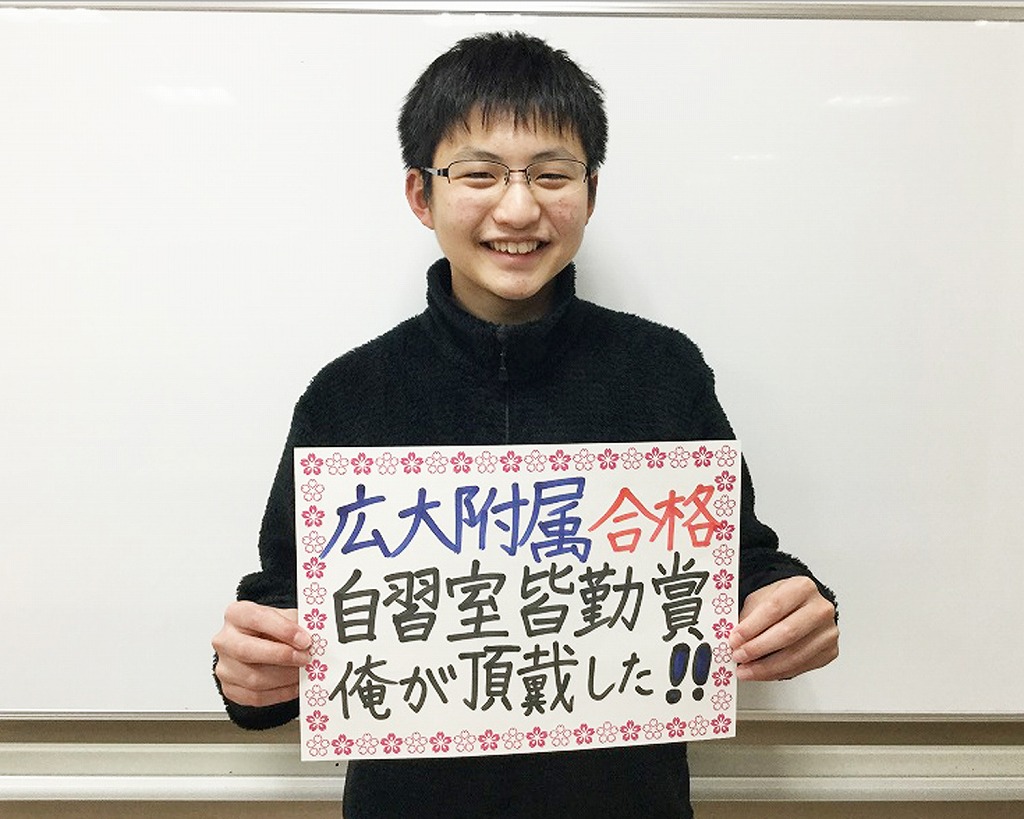 広大附属合格
自習室皆勤賞
俺が頂戴した!!